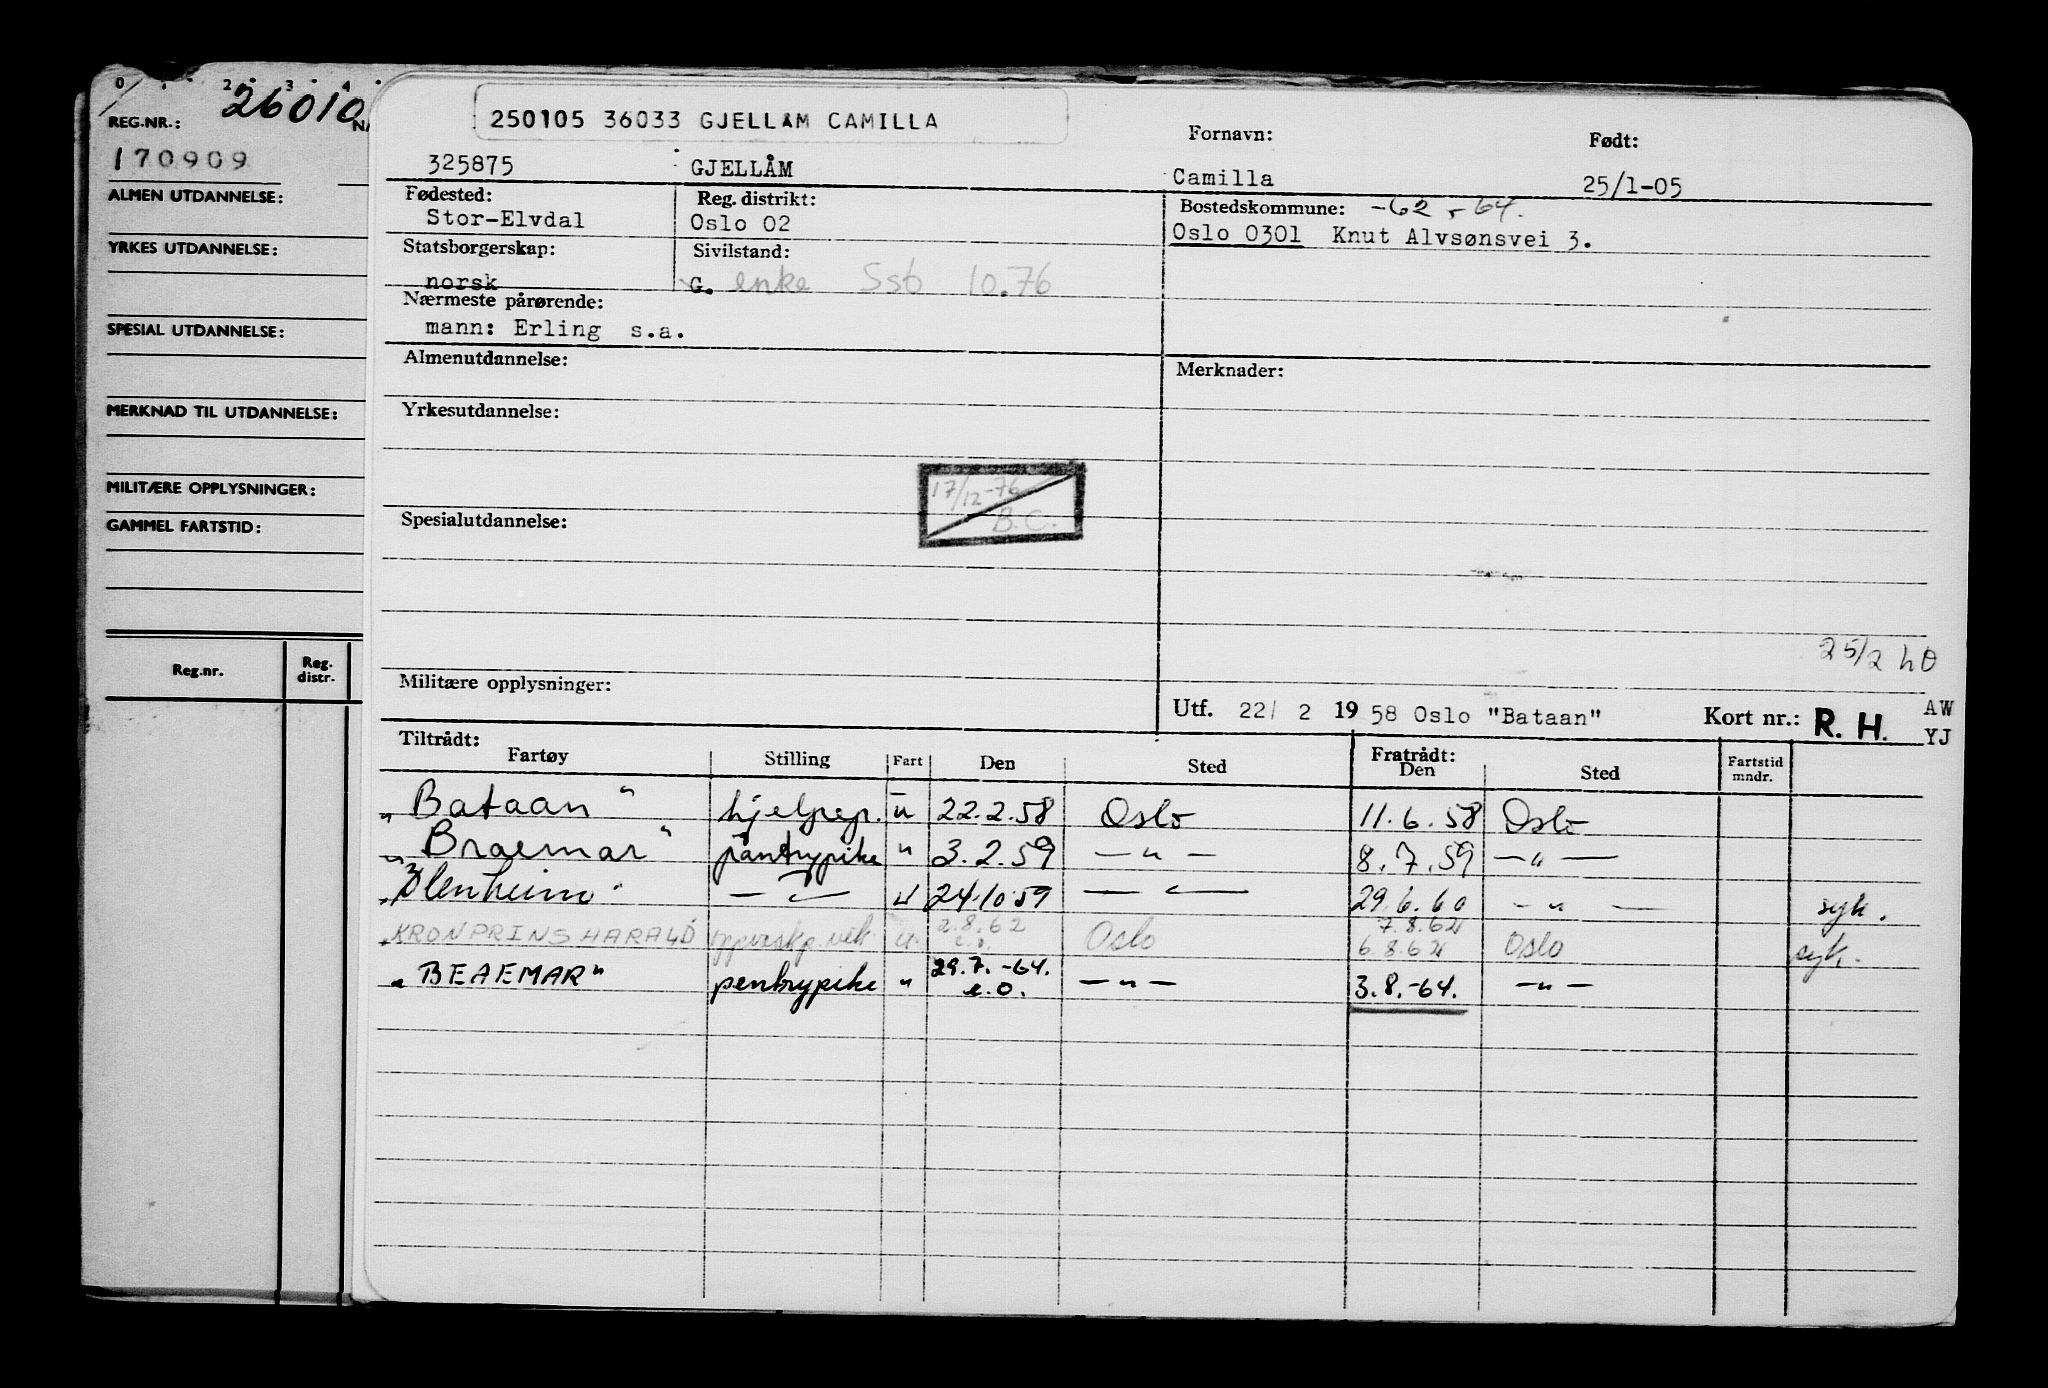 0 . 2 . 3 . 4 .
26010
REG.NR.:
170909
ALMEN UTDANNELSE:
YRKES UTDANNELSE:
SPESIAL UTDANNELSE:
MERKNAD TIL UTDANNELSE:
MILITÆRE OPPLYSNINGER:
GAMMEL FARTSTID:
Reg.nr. Reg. distr.
250105 36033 GJELLAM CAMILLA
Fornavn: Født:
325875 GJELLÅM Camilla 25/1-05
Fødested: Reg. distrikt: Bostedskommune: -62, -64.
Stor-Elvdal Oslo 02 Oslo 0301 Knut Alvsønsvei 3.
Statsborgerskap: Sivilstand:
norsk G. enke Ssb 10.76
Nærmeste pårørende:
mann: Erling s.a.
Almenutdannelse: Merknader:
Yrkesutdannelse:
17/12-76
B.C.
Spesialutdannelse:
25/2
Militære opplysninger:
Utf. 22/ 2 19 58 Oslo "Bataan" Kort nr.: R. H. AW
YJ
Tiltrådt: Fratrådt:
Fartøy Stilling Fart Den Sted Den Sted Fartstid mndr.
"Bataan" hjelpegp. u 22.2.58 Oslo 11.6.58 Oslo
"Braemar" pantrypike " 3.2.59 — " — 8.7.59 — " —
"Blenheim" — " — u 24.10.59 — " — 29.6.60 — " — syk.
"KRONPRINS HARALD u. 2.8.62 e.o. Oslo 7.8.62 6.8.62 Oslo syk.
"BEAEMAR" pentrypike " 29.7.-64. e.o. — " — 3.8.-64. — " —